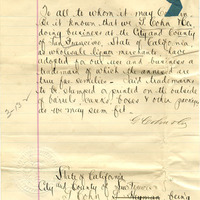 To all whom it may Concern
Be it known that we J. John &
doing business at the City and County
of San Francisco, State of California
as wholesale liquor merchants have
adopted for our use and business a
trademark of which the annexed are
true fac-similes. Said Trademarks
to be stamped or printed on the outside
of barrels, boxes & other packages
as we may seem fit.
State of California
City and County of San Francisco
John being